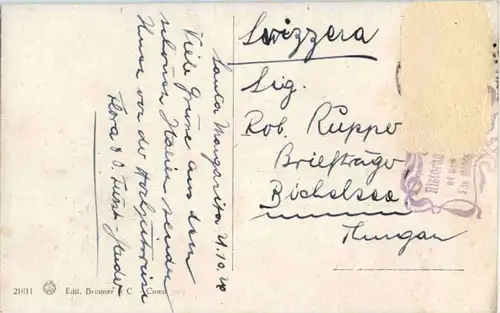 Santa Margarita 21.10.20
Viele Grüsse aus dem
schönen Italien senden
Ihnen von der Hochzeitsreise
Flora & O.
Svizzera
Sig.
Rob. Ruppe
Briefträger
Bichelsee
Thurgau
Ristoran
21611 Edit. Brunner & C. Como